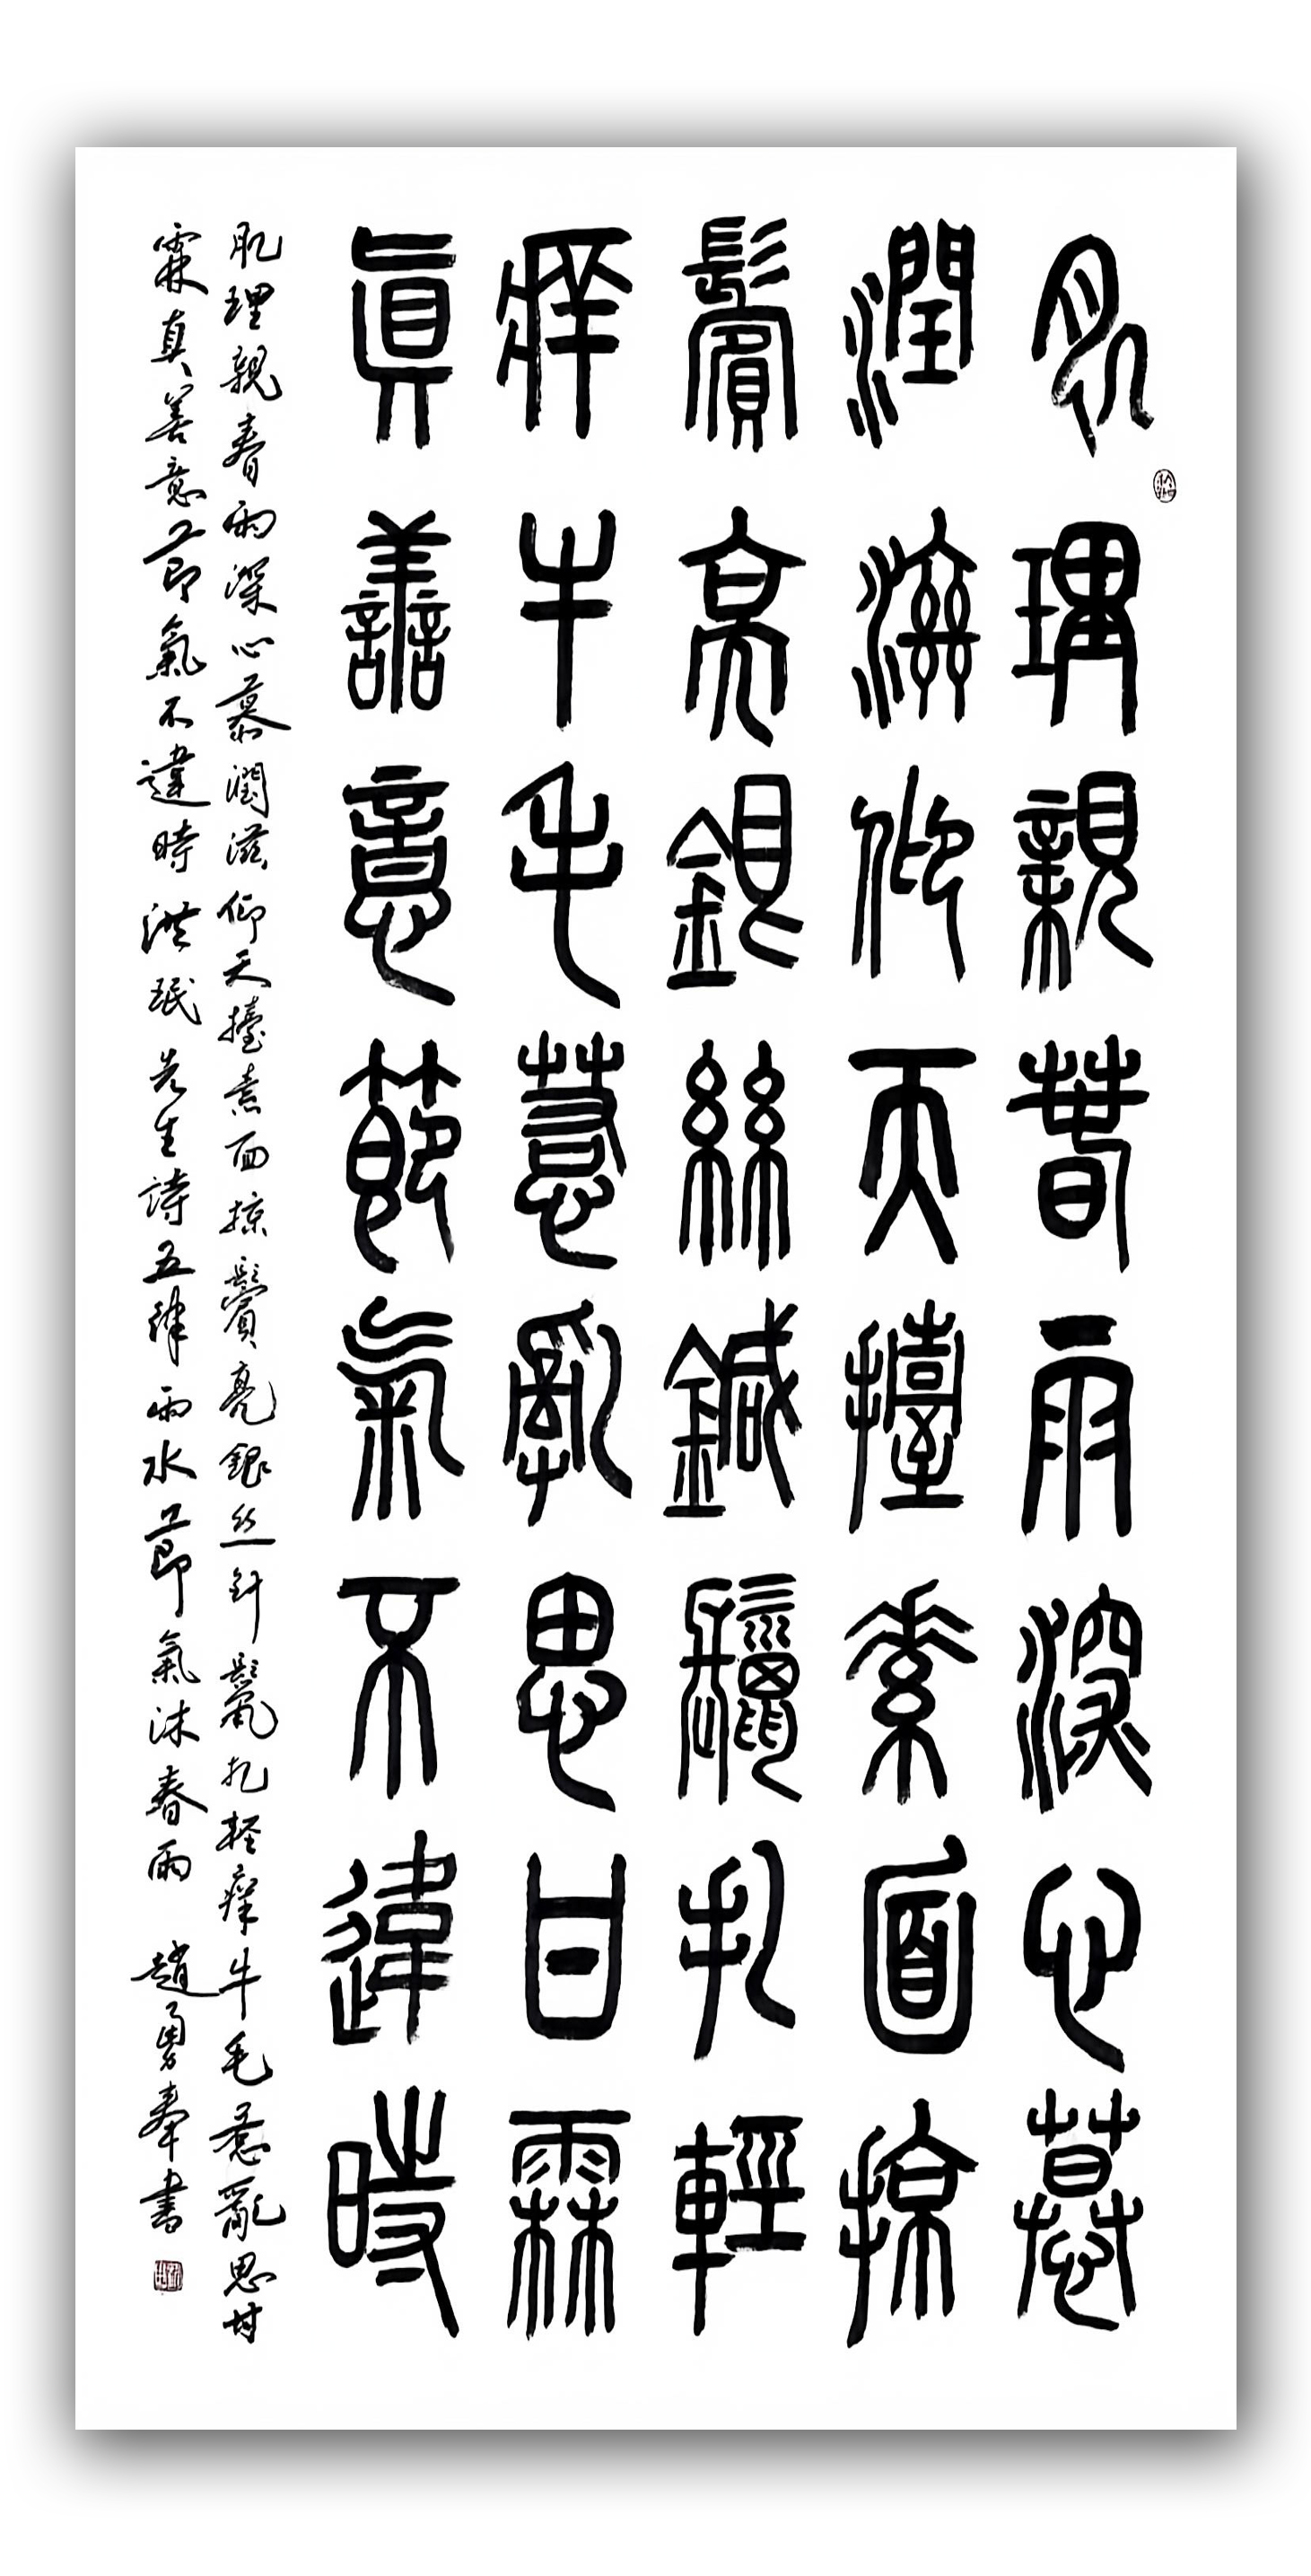 肌理親春雨深心慕
潤滋仰天擡素面掠
鬢亮銀絲鍼鬣扎輕
痒牛毛惹亂思甘霖
眞善意節氣不違時
肌理親春雨深心慕潤滋仰天擡素面掠鬢亮銀丝針鬣扎輕痒牛毛惹亂思甘
霖真善意節氣不違時 洪珉先生詩五律雨水節氣沐春雨 趙勇奉書